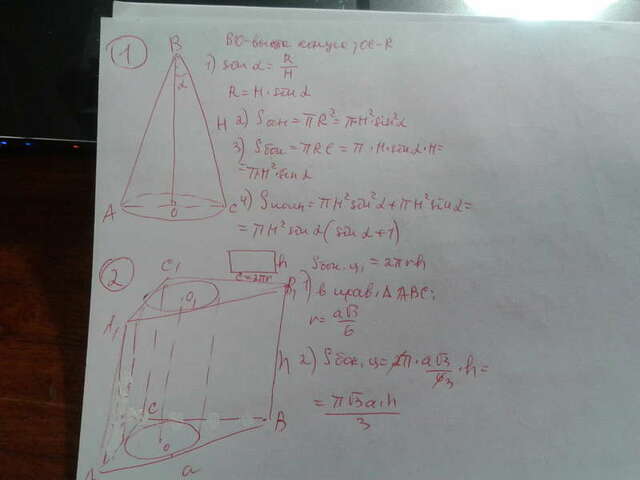 1
BO-высота конуса, OC-R
1) sin α = R/H
R = H·sin α
2) Sосн = πR² = πH²sin²α
3) Sбок = πRℓ = π·H·sin α·H =
= πH²·sin α
4) Sполн = πH²sin²α + πH²sin α =
= πH² sin α (sin α + 1)
B
α
H
A
O
C
2
h
C=2πr
Sбок.ц. = 2πrh
1) в прав. ΔABC:
r = a√3/6
2) Sбок.ц = 2π · a√3/6 3 · h =
= π√3a·h/3
C1
O1
B1
A1
h
C
B
O
A
a